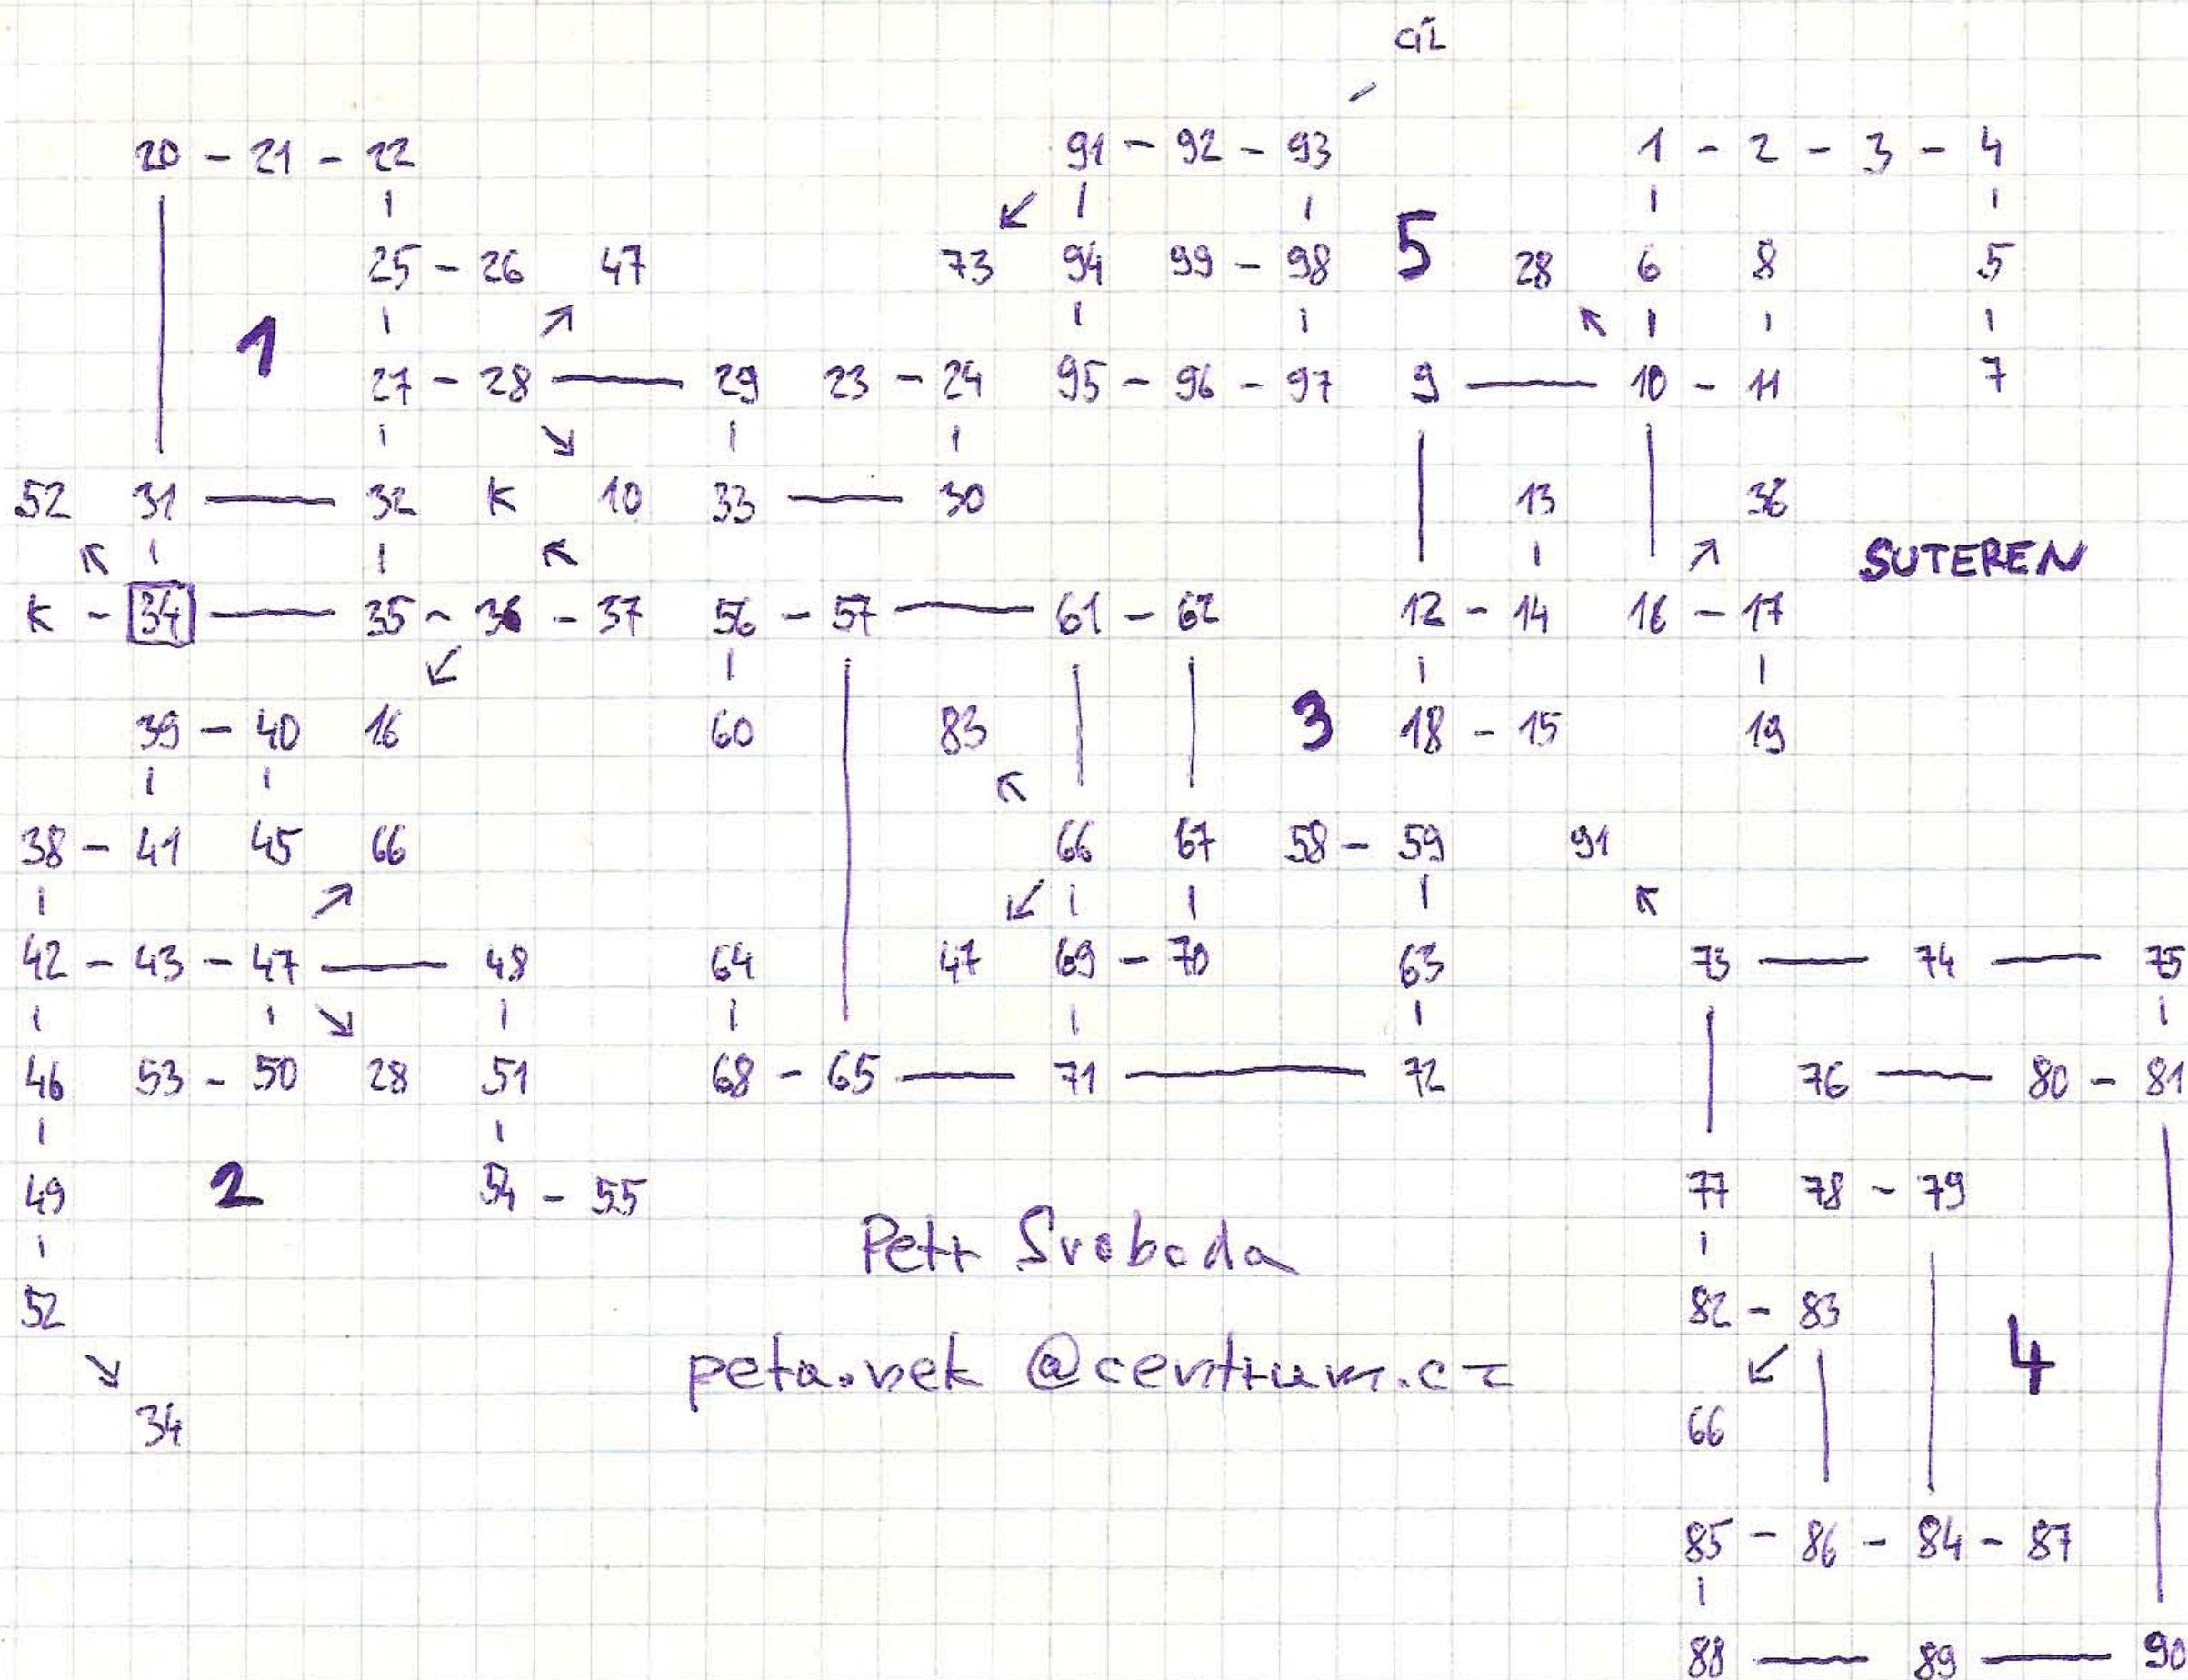 cíl
20 - 21 - 22 91 - 92 - 93 1 - 2 - 3 - 4
25 - 26 47 73 94 99 - 98 5 28 6 8 5
1
27 - 28 — 29 23 - 24 95 - 96 - 97 9 — 10 - 11 7
52 31 — 32 K 10 33 — 30 13 36
SUTEREN
K - 34 — 35 - 36 - 37 56 - 57 — 61 - 62 12 - 14 16 - 17
39 - 40 16 60 83 3 18 - 15 19
38 - 41 45 66 66 67 58 - 59 91
42 - 43 - 47 — 48 64 47 69 - 70 63 73 — 74 — 75
46 53 - 50 28 51 68 - 65 — 71 — 72 76 — 80 - 81
49 2 54 - 55 77 78 - 79
Petr Svoboda
52 82 - 83
peta.vek @centrum.cz 4
34 66
85 - 86 - 84 - 87
88 — 89 — 90